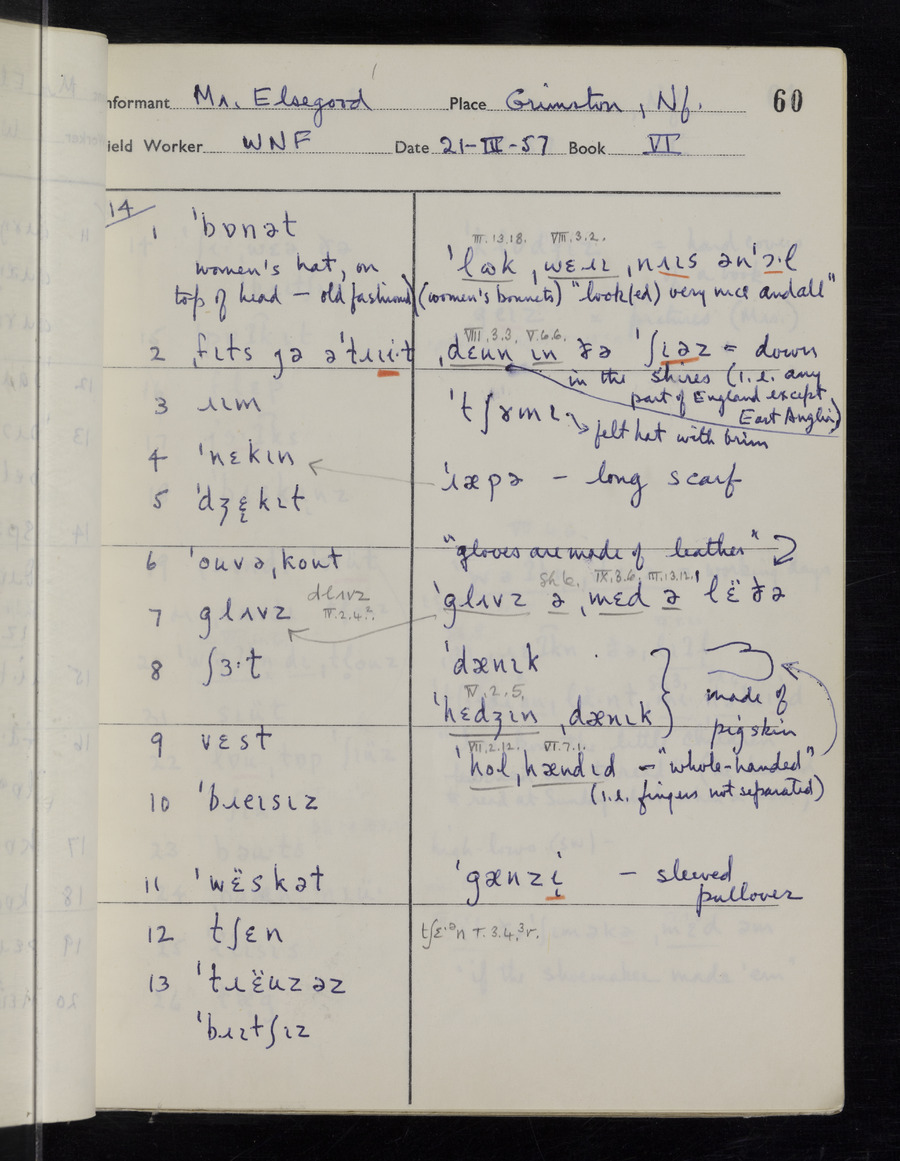 Informant Mr. Elsegood Place Grimston, Nf. 60
Field Worker WNF Date 21-III-57 Book VI
14
1 ˈbɒnət
women's hat, on
top of head — old fashioned
III.13.18. VIII.3.2.
ˈlʊk ˌwɛɹɪ ˌnɪɪs ənˈɔ·l
(women's bonnets) "look(ed) very nice and all"
2 ˌfɪts jə əˈtɹɪi·t
VIII.3.3, V.6.6.
ˌdɛʊn ɪn ðə ˈʃɪəz = down
in the shires (i.e. any
part of England except
East Anglia)
3 ɹɪm
ˈtʃɤmɪ
felt hat with brim
4 ˈnɛkɪn
ˈɹæpə — long scarf
5 ˈdʒɛ̞kɪt
6 ˈouvəˌkout
"gloves are made of leather"
7 glʌvz
dlʌvz
IV.2.4.².
IX.3.6. III.13.12.
ˈglʌvz ə ˌmɛd ə ˈlɛ̈ðə
8 ʃɜ·t
ˈdænɪk
IV.2.5.
ˈhɛdʒɪn ˌdænɪk
made of
pigskin
9 vɛst
VII.2.12. VI.7.1.
ˈholˌhændɪd — "whole-handed"
(i.e. fingers not separated)
10 ˈbɹeɪsɪz
11 ˈwɛ̈skət
ˈgænzi̞ — sleeved
pullover
12 tʃɛn
tʃɛ·ᵊn V.3.4.³r.
13 ˈtɹɛ̈uzəz
ˈbɹɪtʃɪz